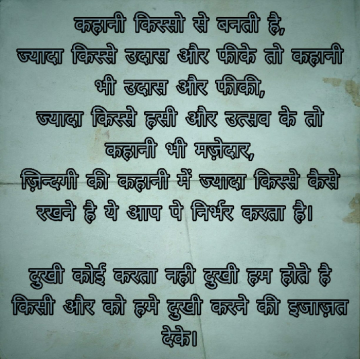 कहानी किस्सो से बनती है,
ज्यादा किस्से उदास और फीके तो कहानी
भी उदास और फीकी,
ज्यादा किस्से हसी और उत्सव के तो
कहानी भी मज़ेदार,
ज़िन्दगी की कहानी में ज्यादा किस्से कैसे
रखने है ये आप पे निर्भर करता है।
दुखी कोई करता नही दुखी हम होते है
किसी और को हमे दुखी करने की इजाज़त
देके।